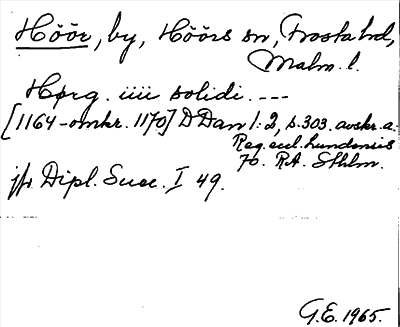 Höör, by, Höörs sn, Frosta hd,
Malm. l.
Hørg. iiii solidi. ---
[1164-omkr. 1170] D Dan 1:2, s. 303. avskr. a.
Reg. eccl. Lundensis
70. RA. Sthlm.
jfr Dipl. Suec. I 49.
G.E. 1965.